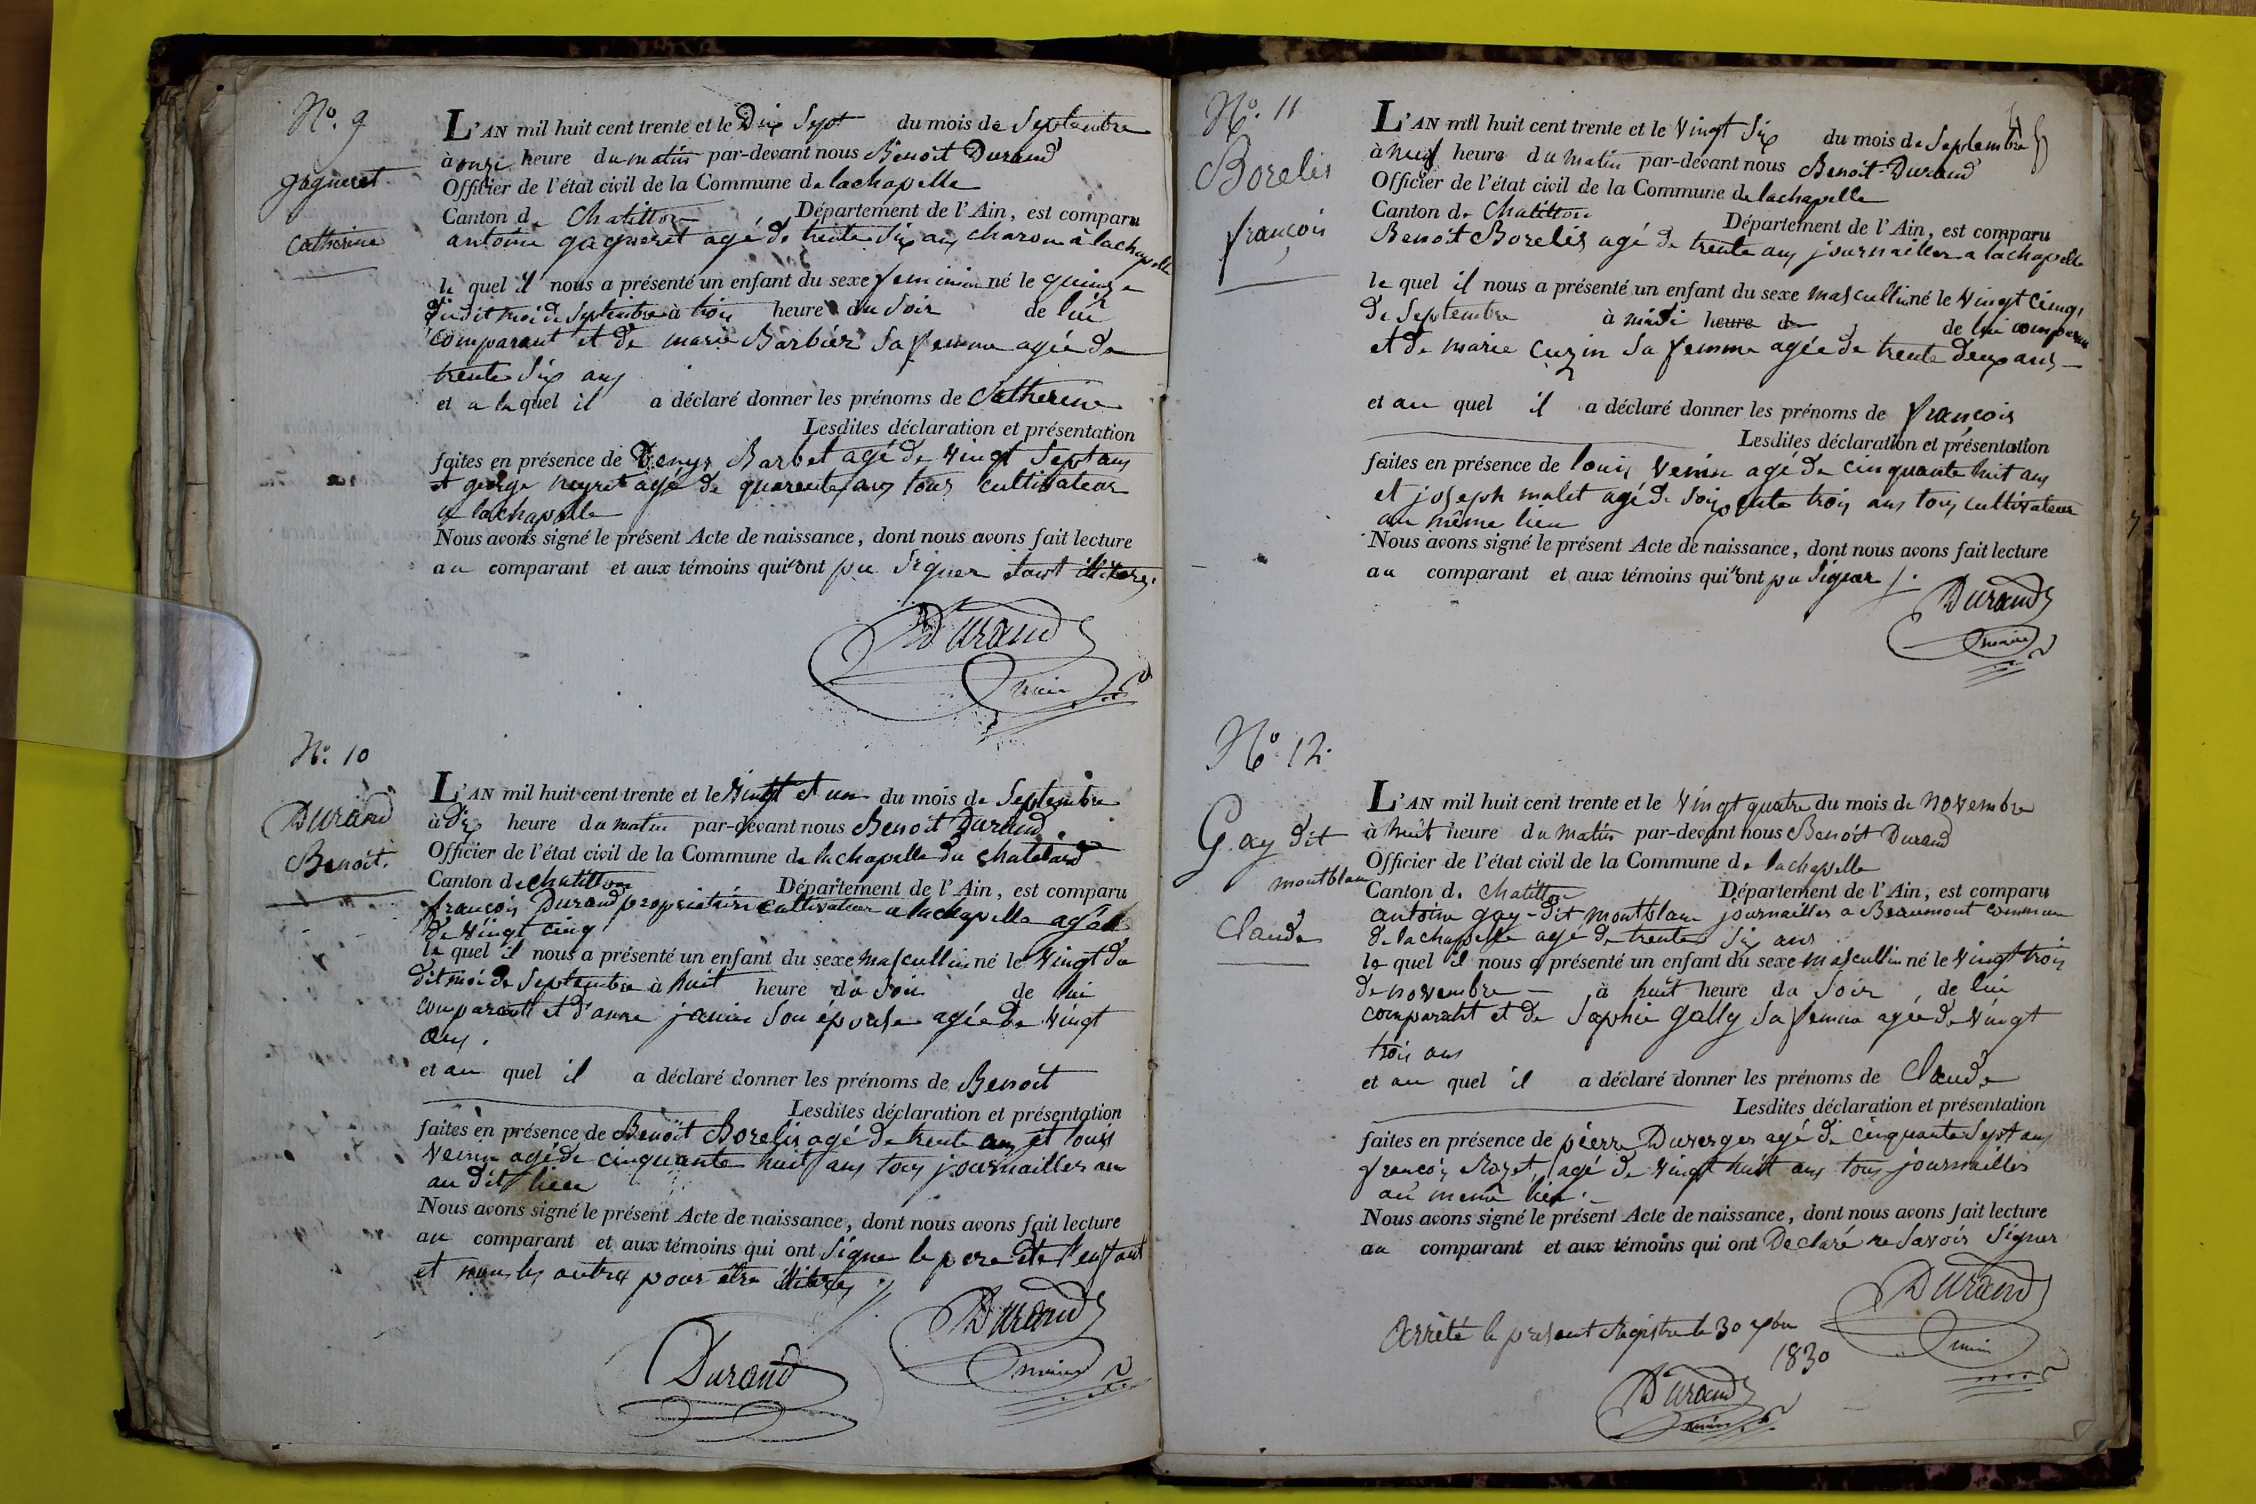 N°. 9
gagneret
Catherine
L'AN mil huit cent trente et le Dix Sept du mois de Septembre
à onze heure du matin par-devant nous Benoit Durand
Officier de l'état civil de la Commune de lachapelle
Canton de Chatillon Département de l'Ain, est comparu
antoine gagneret agé de trente Six ans charon à lachapelle
le quel il nous a présenté un enfant du sexe feminin né le quinze
dudit moi de Septembre à trois heure du Soir de lui
comparant et de marie Barbier Sa femme agée de
trente Six ans
et a la quel il a déclaré donner les prénoms de Catherine
Lesdites déclaration et présentation
faites en présence de Denys Barbet agé de vingt Sept ans
et george neyret agé de quarente ans tous cultivateur
a lachapelle
Nous avons signé le présent Acte de naissance, dont nous avons fait lecture
au comparant et aux témoins qui n'ont pu Signer étant
Durand
maire
N°. 10
Durand
Benoit.
L'AN mil huit cent trente et le Vingt et un du mois de Septembre
à dix heure du matin par-devant nous Benoit Durand
Officier de l'état civil de la Commune de lachapelle du chatelard
Canton de chatillon Département de l'Ain, est comparu
françois Durand propriétaire cultivateur a lachapelle agé
de vingt cinq
le quel il nous a présenté un enfant du sexe mascullin né le vingt du
dit moi de Septembre à huit heure du Soir de lui
comparant et d'anne janin Son épouse agée de vingt
ans.
et au quel il a déclaré donner les prénoms de Benoit
Lesdites déclaration et présentation
faites en présence de Benoit Borelis agé de trente ans et louis
agé de cinquante huit ans tous journailler au
au dit lieu
Nous avons signé le présent Acte de naissance, dont nous avons fait lecture
au comparant et aux témoins qui ont Signer le pere de l'enfant
et non les autres pour être
Durand
maire
Durand
N°. 11
Borelis
françois
L'AN mil huit cent trente et le vingt Six du mois de Septembre
à neuf heure du matin par-devant nous Benoit Durand
Officier de l'état civil de la Commune de lachapelle
Canton de Chatillon Département de l'Ain, est comparu
Benoit Borelis agé de trente ans journailler a lachapelle
le quel il nous a présenté un enfant du sexe mascullin né le vingt cinq
de Septembre à midi heure de de lui comparant
et de marie cuzin Sa femme agée de trente deux ans
et au quel il a déclaré donner les prénoms de françois
Lesdites déclaration et présentation
faites en présence de louis agé de cinquante huit ans
et joseph malet agé de Soixente trois ans tous cultivateur
au même lieu
Nous avons signé le présent Acte de naissance, dont nous avons fait lecture
au comparant et aux témoins qui n'ont pu Signer
Durand
maire
N°. 12.
Gay dit
montblanc
Claude
L'AN mil huit cent trente et le vingt quatre du mois de novembre
à huit heure du matin par-devant nous Benoit Durand
Officier de l'état civil de la Commune de lachapelle
Canton de Chatillon Département de l'Ain, est comparu
antoine gay-dit montblanc journailler a Beaumont commune
de lachapelle agé de trente Six ans
le quel il nous a présenté un enfant du sexe mascullin né le vingt trois
de novembre à huit heure du Soir de lui
comparant et de Sophie Gally Sa femme agée de vingt
trois ans
et au quel il a déclaré donner les prénoms de Claude
Lesdites déclaration et présentation
faites en présence de pierre Duverger agé de cinquante Sept ans
françois Rozet, agé de vingt huit ans tous journailler
au même lieu.
Nous avons signé le présent Acte de naissance, dont nous avons fait lecture
au comparant et aux témoins qui ont Declaré ne Savoir Signer
Durand
maire
Arrêté le présent Registre le 30
1830
Durand
maire